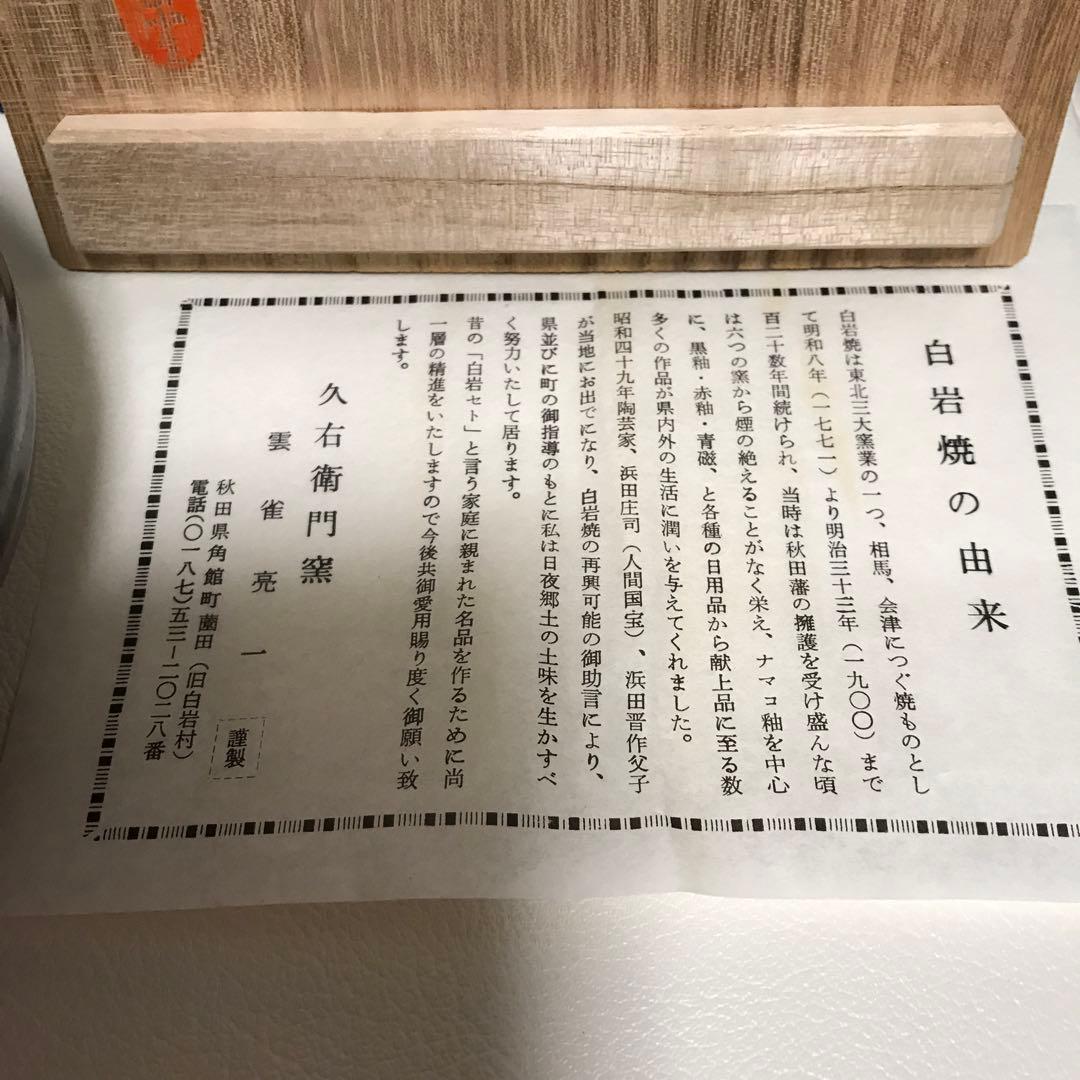 白岩焼の由来
白岩焼は東北三大窯業の一つ、相馬、会津につぐ焼ものとし
て明和八年(一七七一)より明治三十三年(一九〇〇)まで
百二十数年間続けられ、当時は秋田藩の擁護を受け盛んな頃
は六つの窯から煙の絶えることがなく栄え、ナマコ釉を中心
に、黒釉・赤釉・青磁、と各種の日用品から献上品に至る数
多くの作品が県内外の生活に潤いを与えてくれました。
昭和四十九年陶芸家、浜田庄司(人間国宝)、浜田晋作父子
が当地にお出でになり、白岩焼の再興可能の御助言により、
県並びに町の御指導のもとに私は日夜郷土の土味を生かすべ
く努力いたして居ります。
昔の「白岩セト」と言う家庭に親まれた名品を作るために尚
一層の精進をいたしますので今後共御愛用賜り度く御願い致
します。
久右衛門窯
雲雀亮一
謹製
秋田県角館町薗田(旧白岩村)
電話(〇一八七)五三―二〇二八番